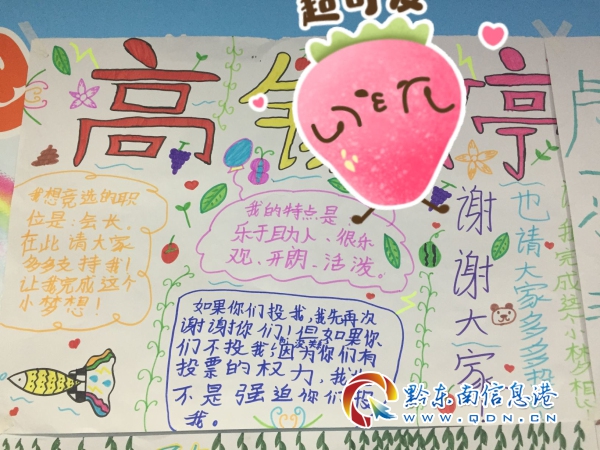 超可爱
高
婷
我想竞选的职
位是：会长。
在此请大家
多多支持我！
让我完成这个
小梦想！
我的特点是
乐于助人、很乐
观、开朗、活泼。
如果你们投我，我先再次
谢谢你们！但如果你
们不投我，因为你们有
投票的权力，我
不是强迫你们投
我。
谢谢大家
也请大家多多
我完成这小梦想
黔东南信息港
WWW.QDN.CN